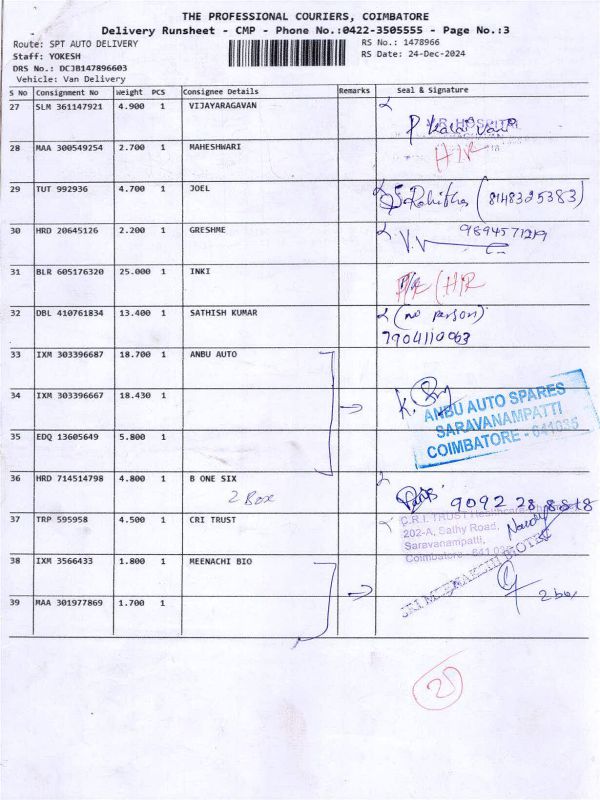 THE PROFESSIONAL COURIERS, COIMBATORE
Delivery Runsheet - CMP - Phone No.:0422-3505555 - Page No.:3
Route: SPT AUTO DELIVERY RS No.: 1478966
Staff: YOKESH RS Date: 24-Dec-2024
DRS No.: DCJB147896603
Vehicle: Van Delivery
S No Consignment No Weight PCS Consignee Details Remarks Seal & Signature
27 SLM 361147921 4.900 1 VIJAYARAGAVAN
HOSPITAL
28 MAA 300549254 2.700 1 MAHESHWARI H/R
29 TUT 992936 4.700 1 JOEL (8148325383)
30 HRD 20645126 2.200 1 GRESHME 9894571219
V.V
31 BLR 605176320 25.000 1 INKI (H/R
32 DBL 410761834 13.400 1 SATHISH KUMAR (no person)
7904110063
33 IXM 303396687 18.700 1 ANBU AUTO
34 IXM 303396667 18.430 1
ANBU AUTO SPARES
SARAVANAMPATTI
COIMBATORE - 641035
35 EDQ 13605649 5.800 1
36 HRD 714514798 4.800 1 B ONE SIX
2 Box 9092 28 8818
37 TRP 595958 4.500 1 CRI TRUST
C.R.I. TRUST
202-A, Sathy Road,
Saravanampatti,
Coimbatore
38 IXM 3566433 1.800 1 MEENACHI BIO
SRI MEENAKSHI BIOTEK
2 box
39 MAA 301977869 1.700 1